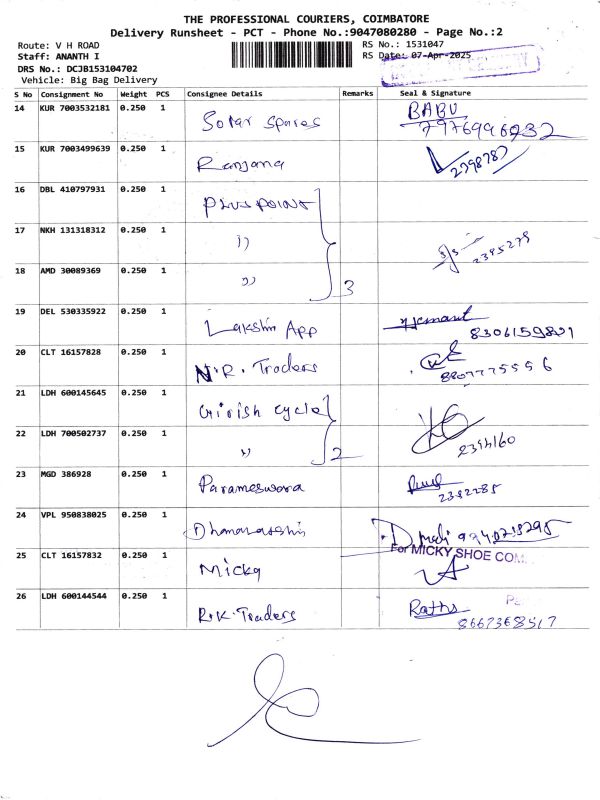 THE PROFESSIONAL COURIERS, COIMBATORE
Delivery Runsheet - PCT - Phone No.:9047080280 - Page No.:2
Route: V H ROAD RS No.: 1531047
Staff: ANANTH I RS Date: 07-Apr-2025
DRS No.: DCJB153104702
Vehicle: Big Bag Delivery
S No Consignment No Weight PCS Consignee Details Remarks Seal & Signature
14 KUR 7003532181 0.250 1 Solar Spares BABU
7976996232
15 KUR 7003499639 0.250 1 Ranjana 2398787
16 DBL 410797931 0.250 1 PLUS POINT
17 NKH 131318312 0.250 1 " 2395279
18 AMD 30089369 0.250 1 " 3
19 DEL 530335922 0.250 1 Lakshmi App Hemant
8306159821
20 CLT 16157828 0.250 1 N.R. Traders
8807775556
21 LDH 600145645 0.250 1 Girish cycle
22 LDH 700502737 0.250 1 " 2 2394160
23 MGD 386928 0.250 1 Parameswara
2392285
24 VPL 950838025 0.250 1 Dhanalakshmi
For MICKY SHOE COM
25 CLT 16157832 0.250 1 Micky
26 LDH 600144544 0.250 1 R.K. Traders Raths
8667368517